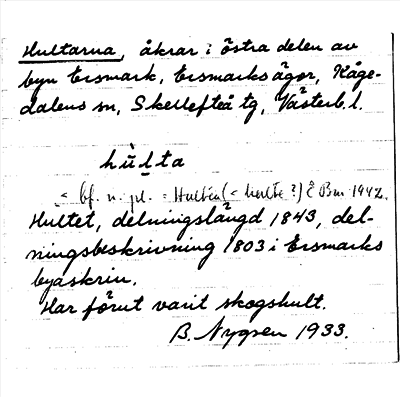 Hultarna, åkrar i östra delen av
byn Ersmark, Ersmarks ägor, Kåge-
dalens sn, Skellefteå tg, Västerb. l.
hù̀lta
bf. n. pl. = Hulten (< hulte ?) E Bm 1942.
Hultet, delningslängd 1843, del-
ningsbeskrivning 1803 i Ersmarks
byaskrin.
Har förut varit skogshult.
B. Nygren 1933.